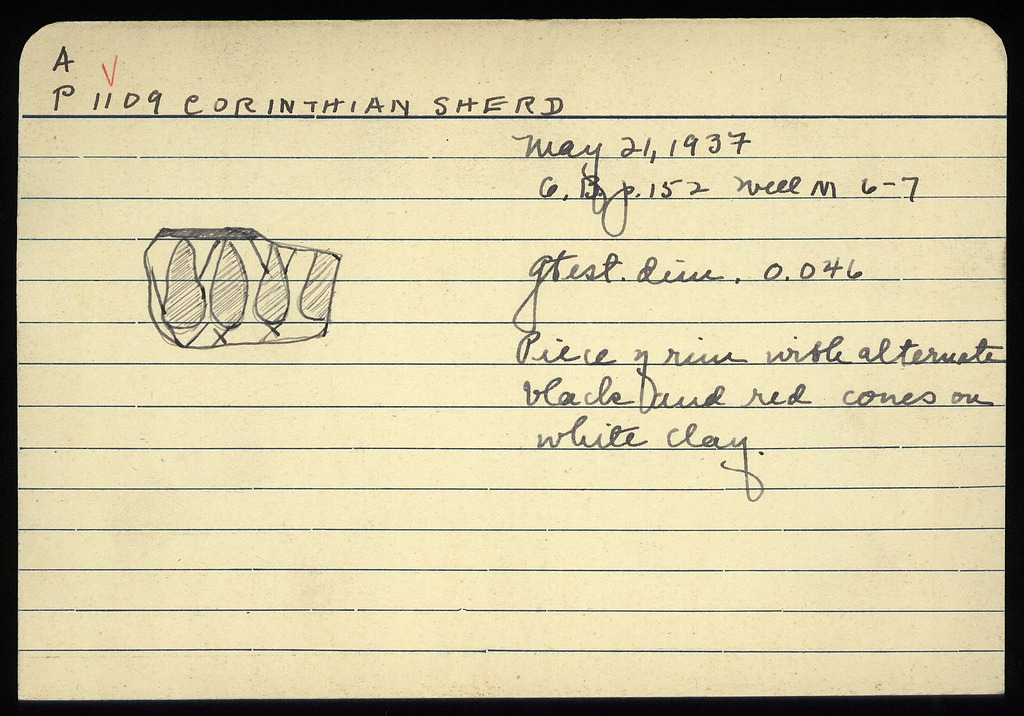 A
P 1109 CORINTHIAN SHERD
May 21, 1937
G.B. p. 152 Well M 6-7
gtest. dim. 0.046
Piece of rim with alternate
black and red cones on
white clay.